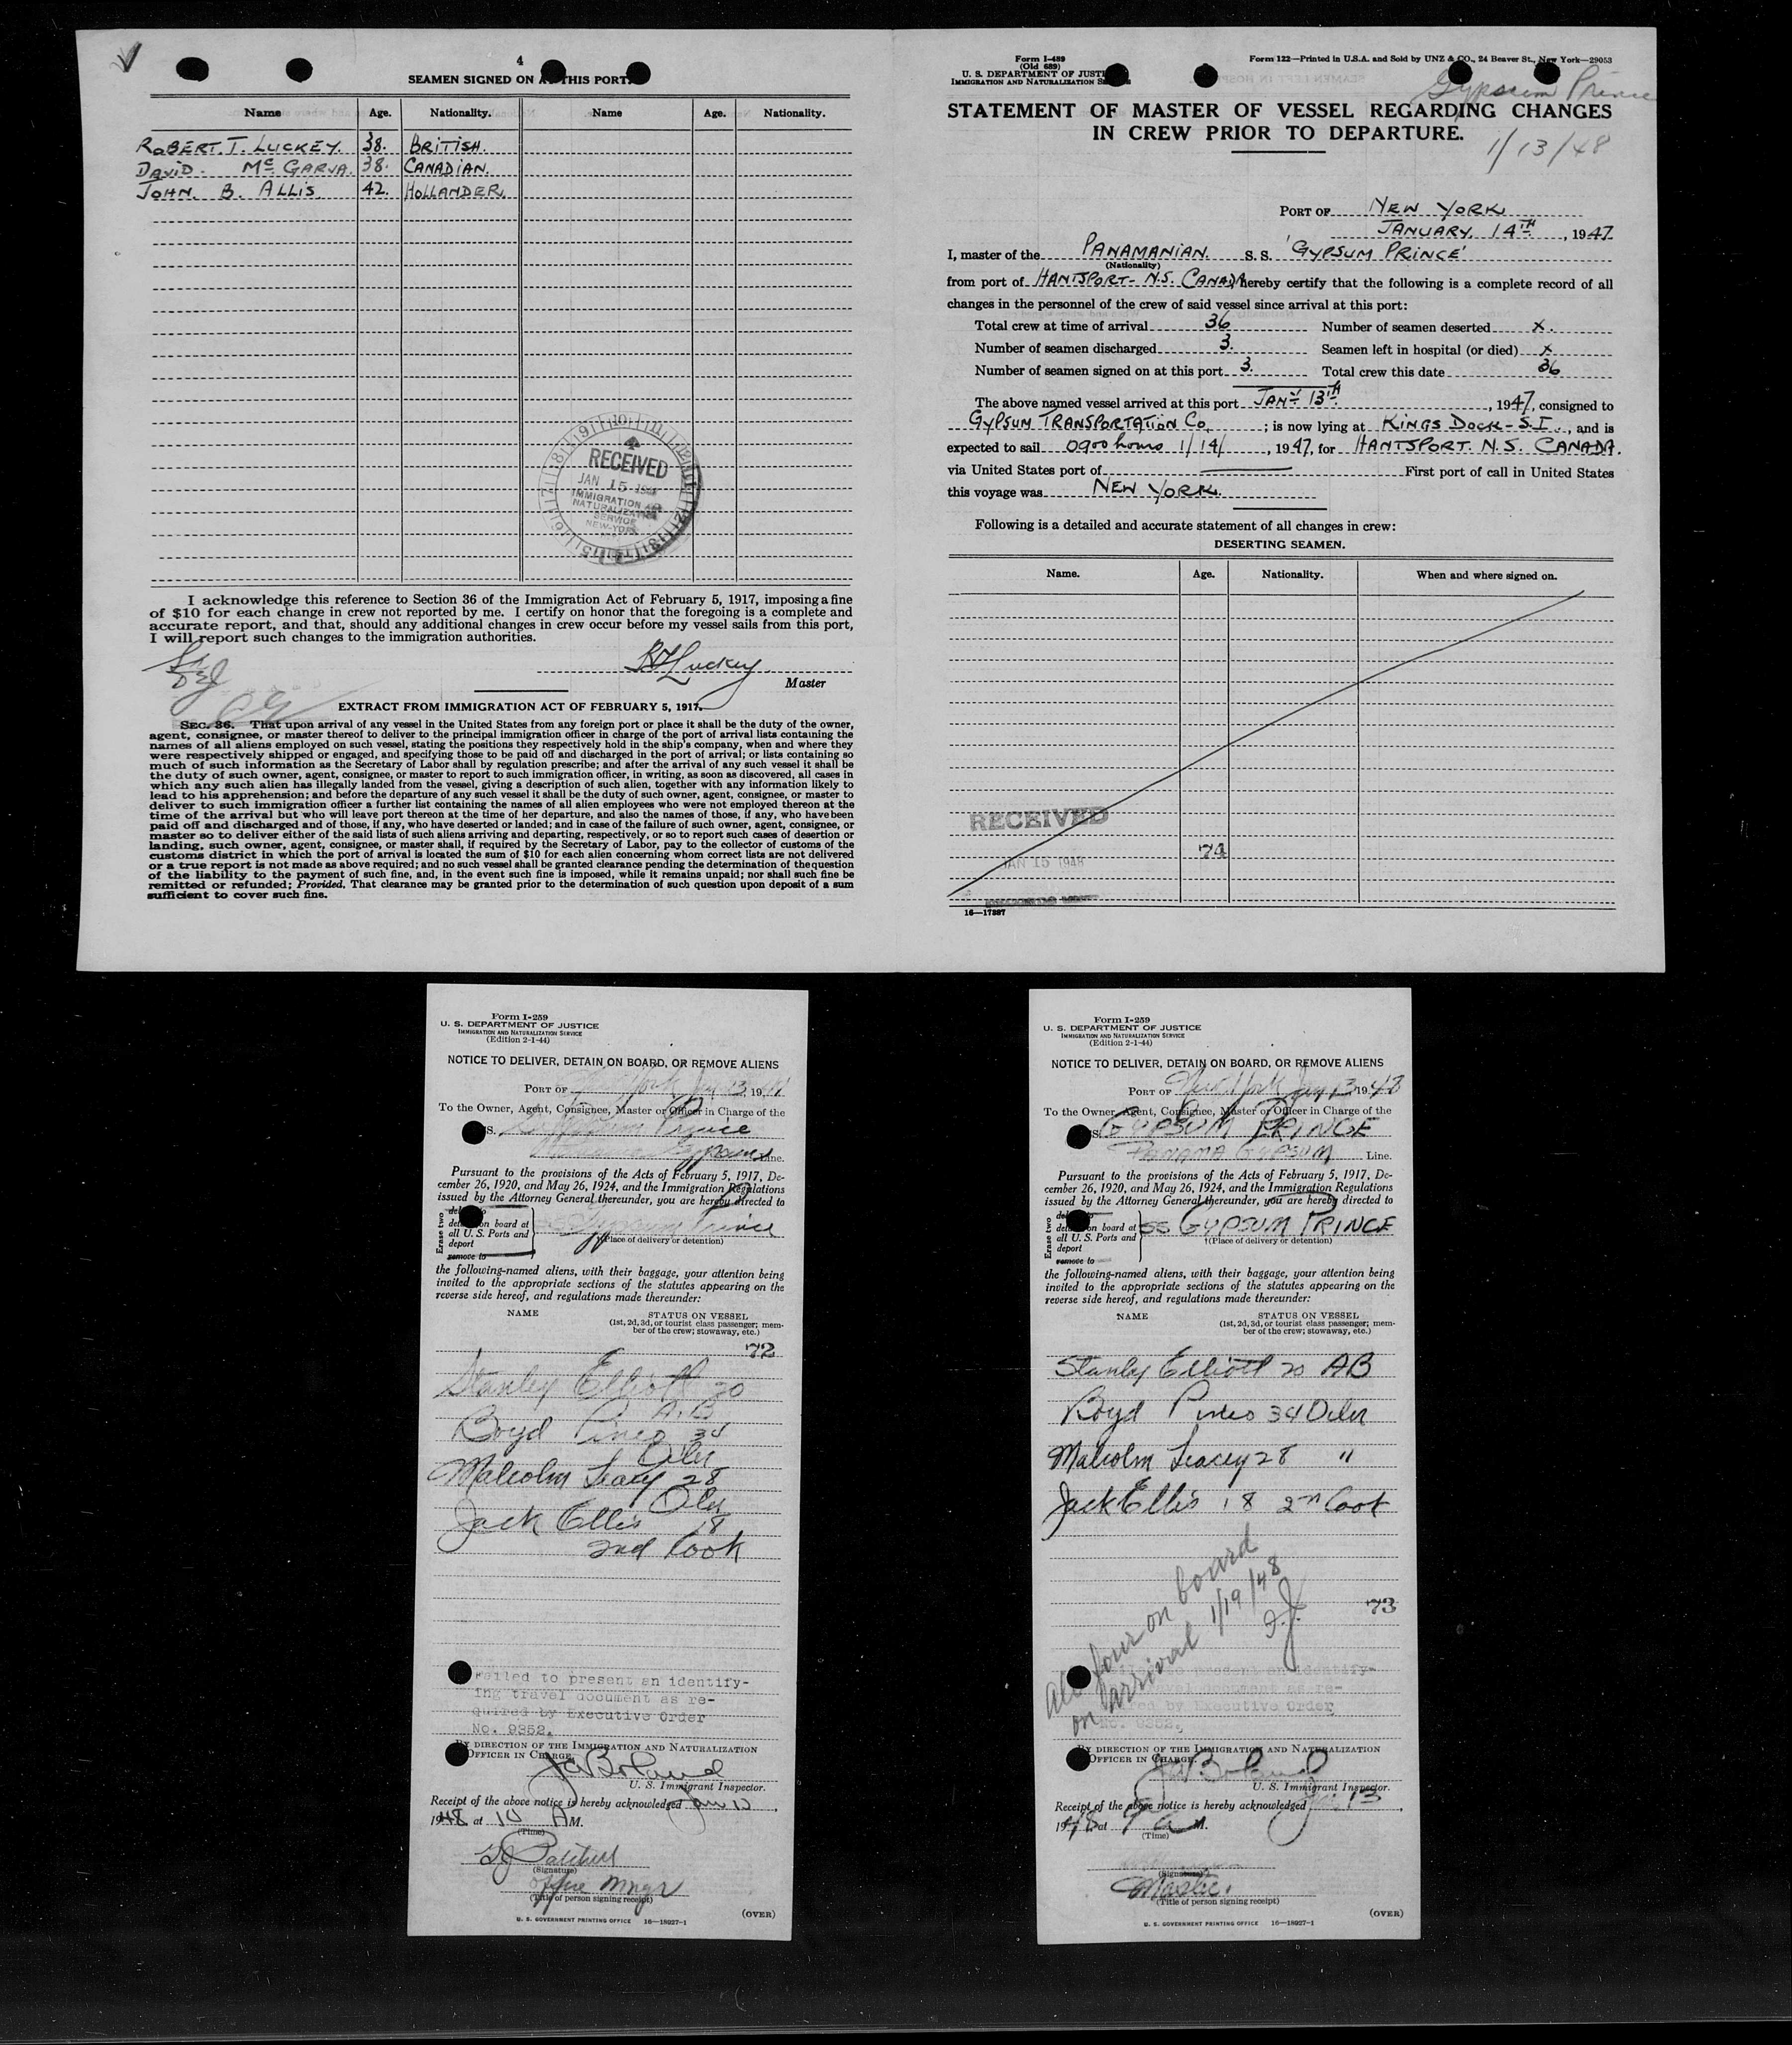 4
SEAMEN SIGNED ON AT THIS PORT.
Name Age. Nationality. Name Age. Nationality.
ROBERT. T. LUCKEY. 38. BRITISH.
DAVID. Mc GARVA. 38. CANADIAN.
JOHN. B. ALLIS. 42. HOLLANDER.
RECEIVED
JAN 15
IMMIGRATION AND
NATURALIZATION
SERVICE
NEW-YORK
I acknowledge this reference to Section 36 of the Immigration Act of February 5, 1917, imposing a fine
of $10 for each change in crew not reported by me. I certify on honor that the foregoing is a complete and
accurate report, and that, should any additional changes in crew occur before my vessel sails from this port,
I will report such changes to the immigration authorities.
RTLuckey
Master
EXTRACT FROM IMMIGRATION ACT OF FEBRUARY 5, 1917.
SEC. 36. That upon arrival of any vessel in the United States from any foreign port or place it shall be the duty of the owner,
agent, consignee, or master thereof to deliver to the principal immigration officer in charge of the port of arrival lists containing the
names of all aliens employed on such vessel, stating the positions they respectively hold in the ship's company, when and where they
were respectively shipped or engaged, and specifying those to be paid off and discharged in the port of arrival; or lists containing so
much of such information as the Secretary of Labor shall by regulation prescribe; and after the arrival of any such vessel it shall be
the duty of such owner, agent, consignee, or master to report to such immigration officer, in writing, as soon as discovered, all cases in
which any such alien has illegally landed from the vessel, giving a description of such alien, together with any information likely to
lead to his apprehension; and before the departure of any such vessel it shall be the duty of such owner, agent, consignee, or master to
deliver to such immigration officer a further list containing the names of all alien employees who were not employed thereon at the
time of the arrival but who will leave port thereon at the time of her departure, and also the names of those, if any, who have been
paid off and discharged and of those, if any, who have deserted or landed; and in case of the failure of such owner, agent, consignee, or
master so to deliver either of the said lists of such aliens arriving and departing, respectively, or so to report such cases of desertion or
landing, such owner, agent, consignee, or master shall, if required by the Secretary of Labor, pay to the collector of customs of the
customs district in which the port of arrival is located the sum of $10 for each alien concerning whom correct lists are not delivered
or a true report is not made as above required; and no such vessel shall be granted clearance pending the determination of the question
of the liability to the payment of such fine, and, in the event such fine is imposed, while it remains unpaid; nor shall such fine be
remitted or refunded; Provided, That clearance may be granted prior to the determination of such question upon deposit of a sum
sufficient to cover such fine.
Form I-489
(Old 689)
U. S. DEPARTMENT OF JUSTICE
IMMIGRATION AND NATURALIZATION SERVICE
Form 122—Printed in U.S.A. and Sold by UNZ & CO., 24 Beaver St., New York—29053
Gypsum Prince
STATEMENT OF MASTER OF VESSEL REGARDING CHANGES
IN CREW PRIOR TO DEPARTURE.
1/13/48
PORT OF NEW YORK
JANUARY 14TH, 1947
I, master of the PANAMANIAN. S. S. 'GYPSUM PRINCE'
(Nationality)
from port of HANTSPORT- N.S. CANADA hereby certify that the following is a complete record of all
changes in the personnel of the crew of said vessel since arrival at this port:
Total crew at time of arrival 36 Number of seamen deserted x.
Number of seamen discharged 3. Seamen left in hospital (or died) x
Number of seamen signed on at this port 3. Total crew this date 36
The above named vessel arrived at this port JANY 13TH, 1947, consigned to
GYPSUM TRANSPORTATION Co. ; is now lying at KINGS DOCK-S.I., and is
expected to sail 0900 hours 1/14/, 1947, for HANTSPORT. N.S. CANADA.
via United States port of First port of call in United States
this voyage was NEW YORK.
Following is a detailed and accurate statement of all changes in crew:
DESERTING SEAMEN.
Name. Age. Nationality. When and where signed on.
RECEIVED
JAN 15 1948
74
16—17887
Form I-259
U. S. DEPARTMENT OF JUSTICE
IMMIGRATION AND NATURALIZATION SERVICE
(Edition 2-1-44)
NOTICE TO DELIVER, DETAIN ON BOARD, OR REMOVE ALIENS
PORT OF New York Jan 13, 19
To the Owner, Agent, Consignee, Master or Officer in Charge of the
SS. Gypsum Prince
Line.
Pursuant to the provisions of the Acts of February 5, 1917, De-
cember 26, 1920, and May 26, 1924, and the Immigration Regulations
issued by the Attorney General thereunder, you are hereby directed to
Erase two
deliver to
detain on board at
all U. S. Ports and
deport
remove to
SS Gypsum Prince
(Place of delivery or detention)
the following-named aliens, with their baggage, your attention being
invited to the appropriate sections of the statutes appearing on the
reverse side hereof, and regulations made thereunder:
NAME STATUS ON VESSEL
(1st, 2d, 3d, or tourist class passenger; mem-
ber of the crew; stowaway, etc.)
72
Stanley Elliott 20
A.B
Boyd Pineo 34
Oiler
Malcolm Leacy 28
Oiler
Jack Ellis 18
2nd Cook
Failed to present an identify-
ing travel document as re-
quired by Executive Order
No. 9352.
BY DIRECTION OF THE IMMIGRATION AND NATURALIZATION
OFFICER IN CHARGE.
JABorland
U. S. Immigrant Inspector.
Receipt of the above notice is hereby acknowledged Jan 13,
1948 at 10 AM.
(Time)
(Signature)
Office Mngr
(Title of person signing receipt)
(OVER)
U. S. GOVERNMENT PRINTING OFFICE 16—18927-1
Form I-259
U. S. DEPARTMENT OF JUSTICE
IMMIGRATION AND NATURALIZATION SERVICE
(Edition 2-1-44)
NOTICE TO DELIVER, DETAIN ON BOARD, OR REMOVE ALIENS
PORT OF New York Jan 13 1948
To the Owner, Agent, Consignee, Master or Officer in Charge of the
SS. GYPSUM PRINCE
PANAMA GYPSUM Line.
Pursuant to the provisions of the Acts of February 5, 1917, De-
cember 26, 1920, and May 26, 1924, and the Immigration Regulations
issued by the Attorney General thereunder, you are hereby directed to
Erase two
deliver to
detain on board at
all U. S. Ports and
deport
remove to
SS GYPSUM PRINCE
(Place of delivery or detention)
the following-named aliens, with their baggage, your attention being
invited to the appropriate sections of the statutes appearing on the
reverse side hereof, and regulations made thereunder:
NAME STATUS ON VESSEL
(1st, 2d, 3d, or tourist class passenger; mem-
ber of the crew; stowaway, etc.)
Stanley Elliott 20 AB
Boyd Pineo 34 Oiler
Malcolm Leacy 28 "
Jack Ellis 18 2nd Cook
All four on board
on arrival 1/19/48
73
Failed to present an identify-
ing travel document as re-
quired by Executive Order
No. 9352.
BY DIRECTION OF THE IMMIGRATION AND NATURALIZATION
OFFICER IN CHARGE.
JABorland
U. S. Immigrant Inspector.
Receipt of the above notice is hereby acknowledged Jan 13,
1948 at 9 AM.
(Time)
(Signature)
Master
(Title of person signing receipt)
(OVER)
U. S. GOVERNMENT PRINTING OFFICE 16—18927-1